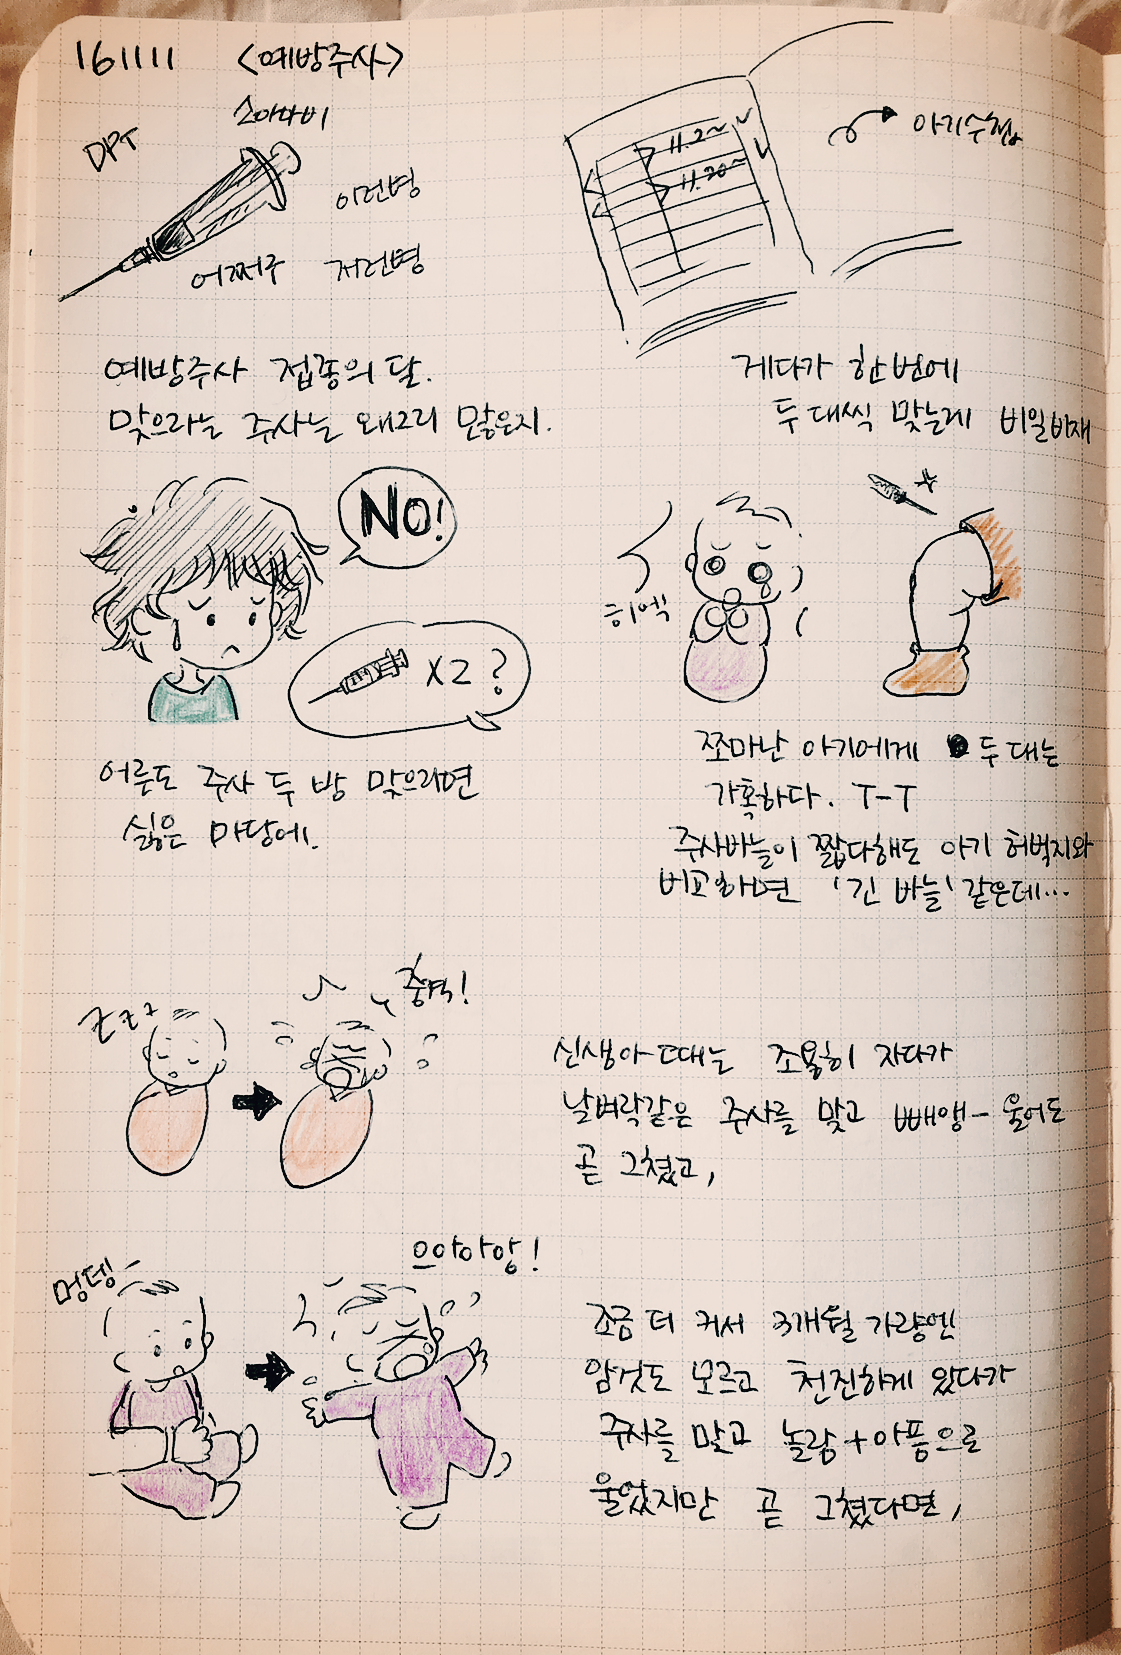 161111 <예방주사>
소아마비
DPT
이런병
어쩌구 저런병
11.2~
11.20~
아기수첩
예방주사 접종의 달.
맞으라는 주사는 왜그리 많은지.
게다가 한번에
두대씩 맞는데 비일비재
NO!
X2?
히엑
어른도 주사 두 방 맞으려면
싫은 마당에.
쪼마난 아기에게 두 대는
가혹하다. T-T
주사바늘이 짧다해도 아기 허벅지와
비교하면 '긴 바늘' 같은데...
zzz
충격!
신생아 때는 조용히 자다가
날벼락같은 주사를 맞고 빼앵- 울어도
곧 그쳤고,
멍뎅-
으아아앙!
조금 더 커서 3개월 가량엔
암것도 모르고 천진하게 있다가
주사를 맞고 놀람+아픔으로
울었지만 곧 그쳤다면,